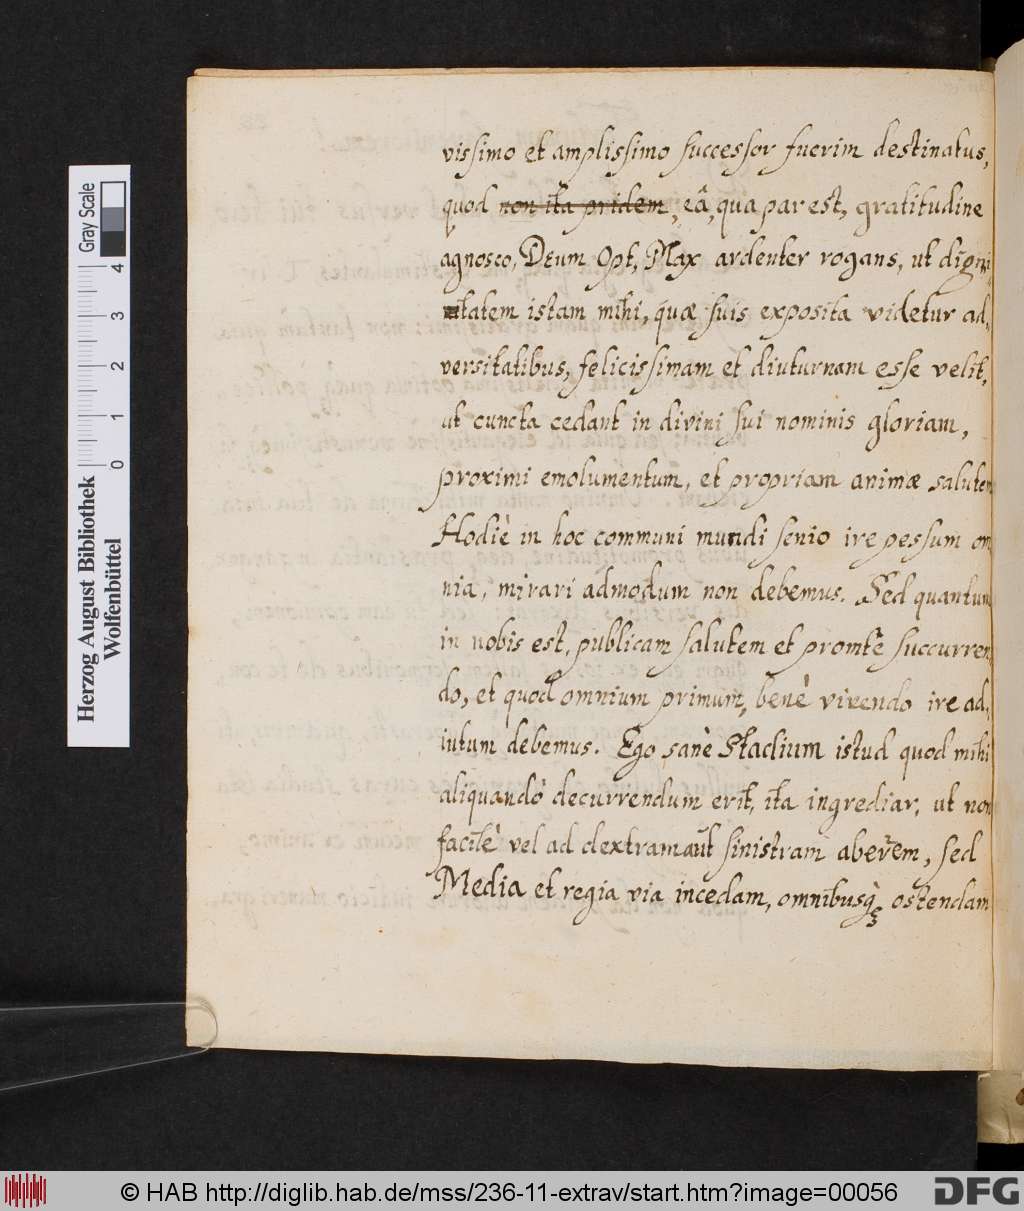 vissimo et amplissimo successor fuerim destinatus,
quod non ita pridem, eâ, qua par est, gratitudine
agnosco, Deum Opt, Max ardenter rogans, ut digni,
tatem istam mihi, quæ suis exposita videtur ad,
versitatibus, felicissimam et diuturnam esse velit,
ut cuncta cedant in divini sui nominis gloriam,
proximi emolumentum, et propriam animæ salutem
Hodiè in hoc communi mundi senio ire pessum om
nia, mirari admodum non debemus. Sed quantum
in nobis est, publicam salutem et promtè succurren,
do, et quod omnium primum, benè vivendo ire ad,
iutum debemus. Ego sanè Stadium istud quod mihi
aliquandò decurrendum erit, ita ingrediar, ut non
facilè vel ad dextram aut sinistram aberrem, sed
Media et regia via incedam, omnibusq̀ꝫ ostendam
Herzog August Bibliothek
Wolfenbüttel
0 1 2 3 4
Gray Scale
© HAB http://diglib.hab.de/mss/236-11-extrav/start.htm?image=00056
DFG